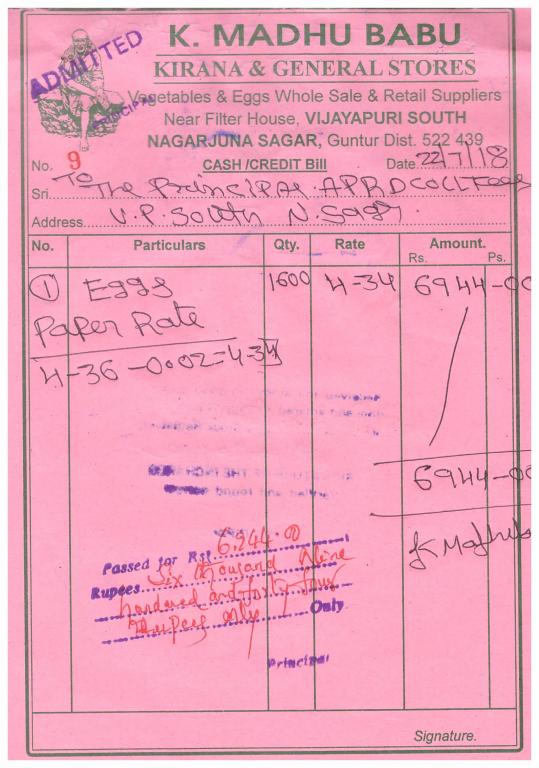 K. MADHU BABU
ADMITTED
KIRANA & GENERAL STORES
Vegetables & Eggs Whole Sale & Retail Suppliers
PRINCIPAL
Near Filter House, VIJAYAPURI SOUTH
NAGARJUNA SAGAR, Guntur Dist. 522 439
No. 9 CASH /CREDIT Bill Date 22/7/18
Sri To The Principal A.P.R.D COLLEGE
Address V.P. South N. Sagar
No. Particulars Qty. Rate Amount.
Rs. Ps.
① Eggs 1600 4-34 6944-00
Paper Rate
4-36 -0.002=4-34
6944-00
Passed for Rs. 6,944.00
Rupees Six thousand Nine
hundered and forty four
Rupees only Only
Principal
Signature.